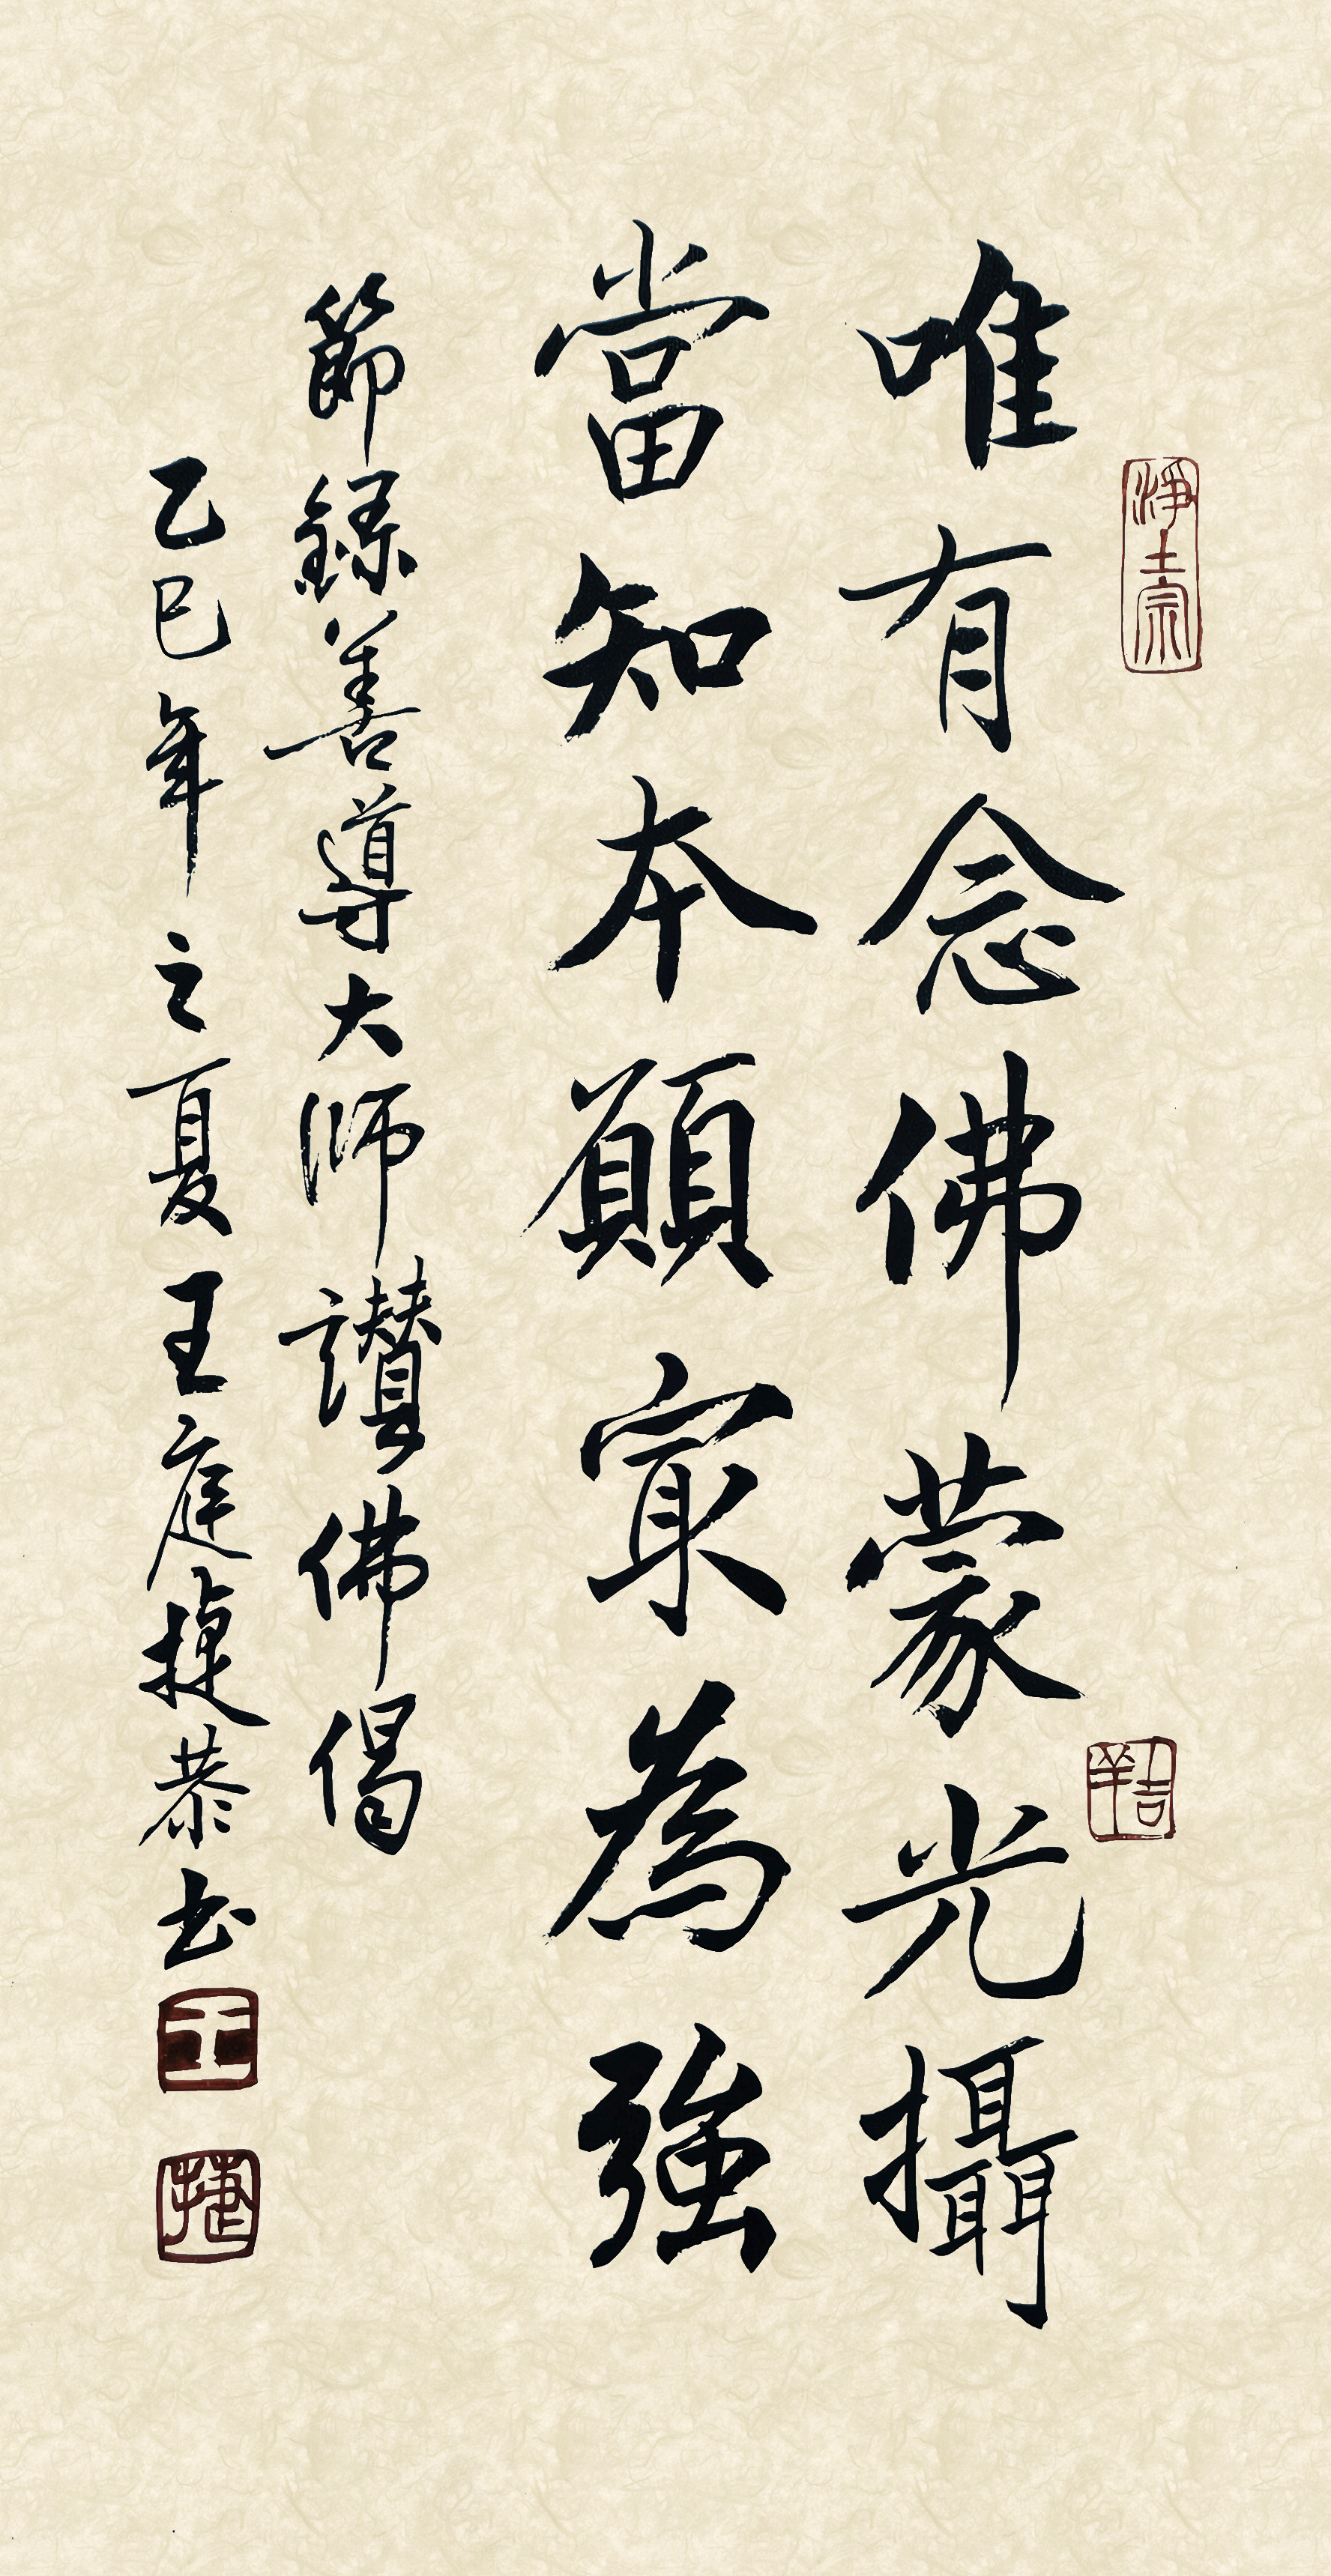 唯有念佛蒙光攝
當知本願寂為強
節錄善導大師讚佛偈
乙巳年之夏王庭捷恭书
淨土宗
吉羊
王
捷